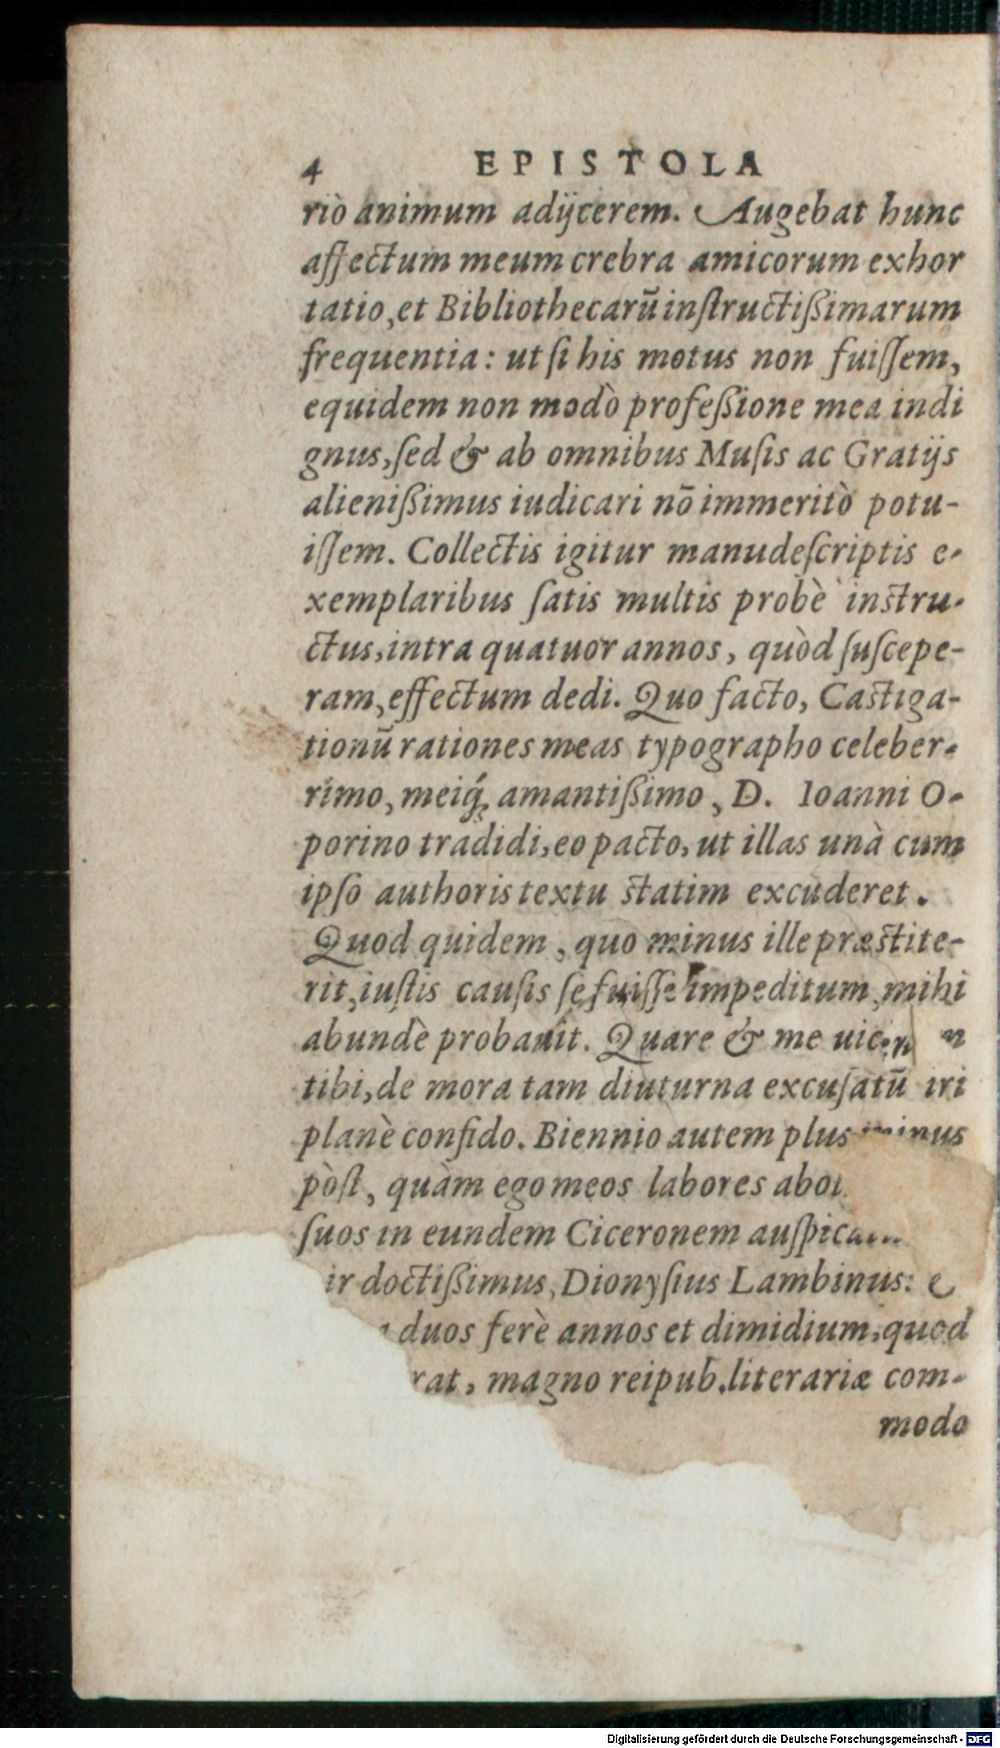 4 EPISTOLA
riò animum adijcerem. Augebat hunc
affectum meum crebra amicorum exhor
tatio, et Bibliothecarū instructißimarum
frequentia: ut si his motus non fuissem,
equidem non modò profeßione mea indi
gnus, sed & ab omnibus Musis ac Gratijs
alienißimus iudicari nō immeritò potu-
issem. Collectis igitur manudescriptis e-
xemplaribus satis multis probè instru-
ctus, intra quatuor annos, quòd suscepe-
ram, effectum dedi. Quo facto, Castiga-
tionū rationes meas typographo celeber-
rimo, meiq́; amantißimo, D. Ioanni O-
porino tradidi, eo pacto, ut illas unà cum
ipso authoris textu statim excuderet.
Quod quidem, quo minus ille præstite-
rit, iustis causis se fuisse impeditum, mihi
abundè probauit. Quare & me
tibi, de mora tam diuturna excusatū iri
planè confido. Biennio autem plus minus
pòst, quàm ego meos labores
suos in eundem Ciceronem
doctißimus, Dionysius Lambinus:
duos ferè annos et dimidium, quod
magno reipub. literariæ com-
modo
Digitalisierung gefördert durch die Deutsche Forschungsgemeinschaft - DFG